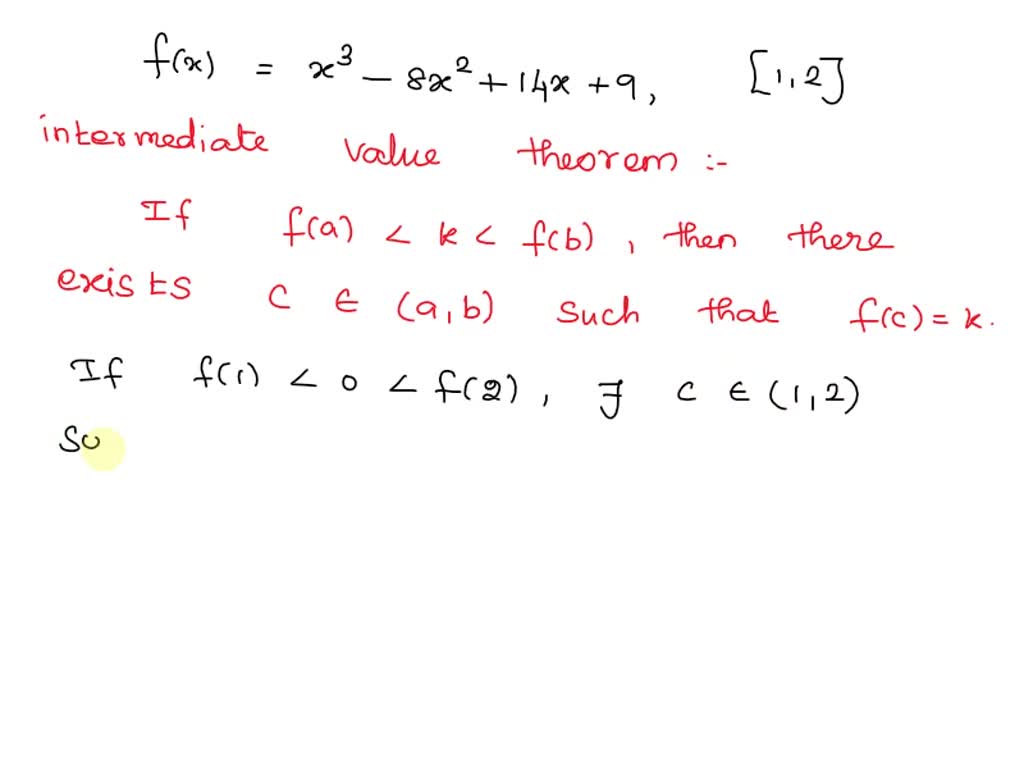 f(x) = x³ - 8x² + 14x + 9, [1,2]
intermediate value theorem :-
If f(a) < k < f(b), then there
exists c ∈ (a,b) such that f(c) = k.
If f(1) < 0 < f(2), ∃ c ∈ (1,2)
So